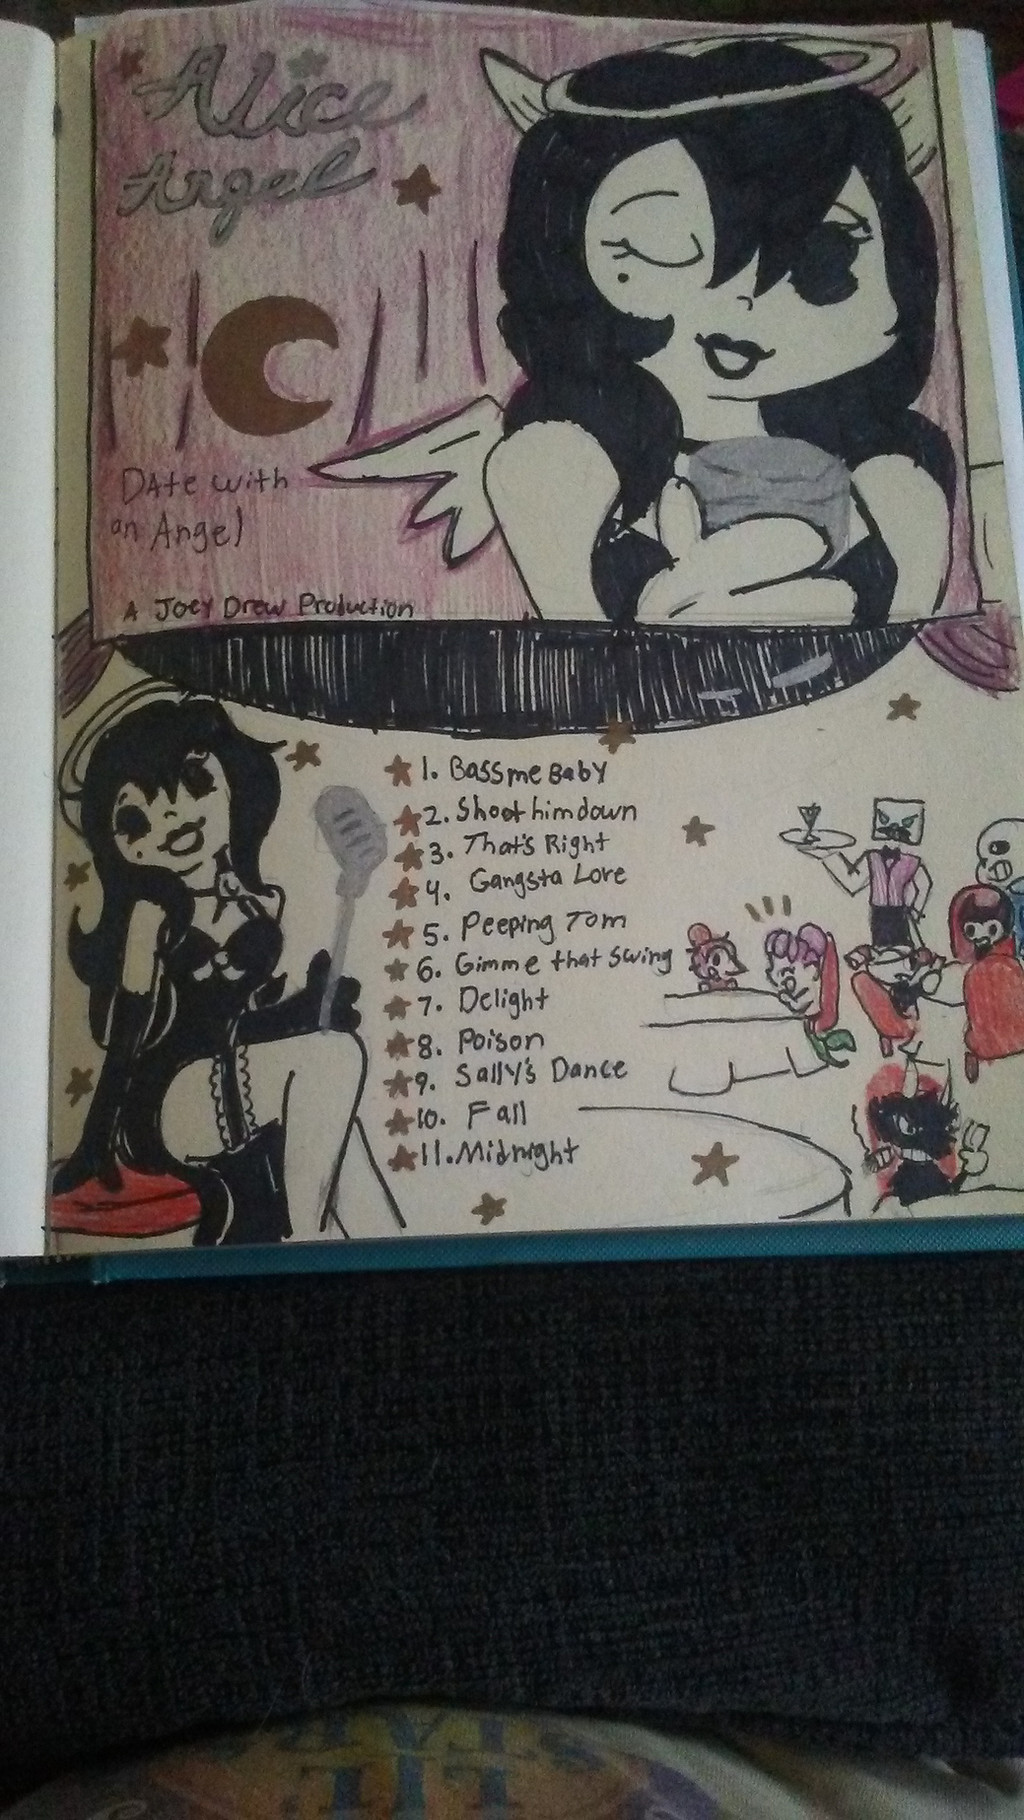 Alice
Angel
Date with
an Angel
A Joey Drew Production
1. Bass me Baby
2. Shoot him down
3. That's Right
4. Gangsta Love
5. Peeping Tom
6. Gimme that swing
7. Delight
8. Poison
9. Sally's Dance
10. Fall
11. Midnight